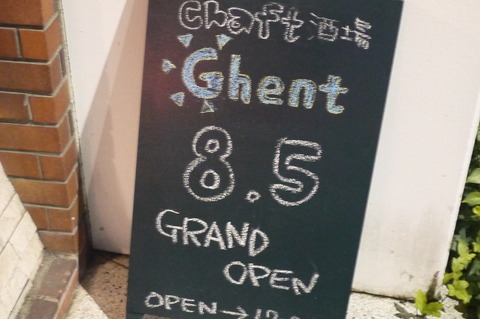 Chaft酒場
Ghent
8.5
GRAND
OPEN
OPEN→